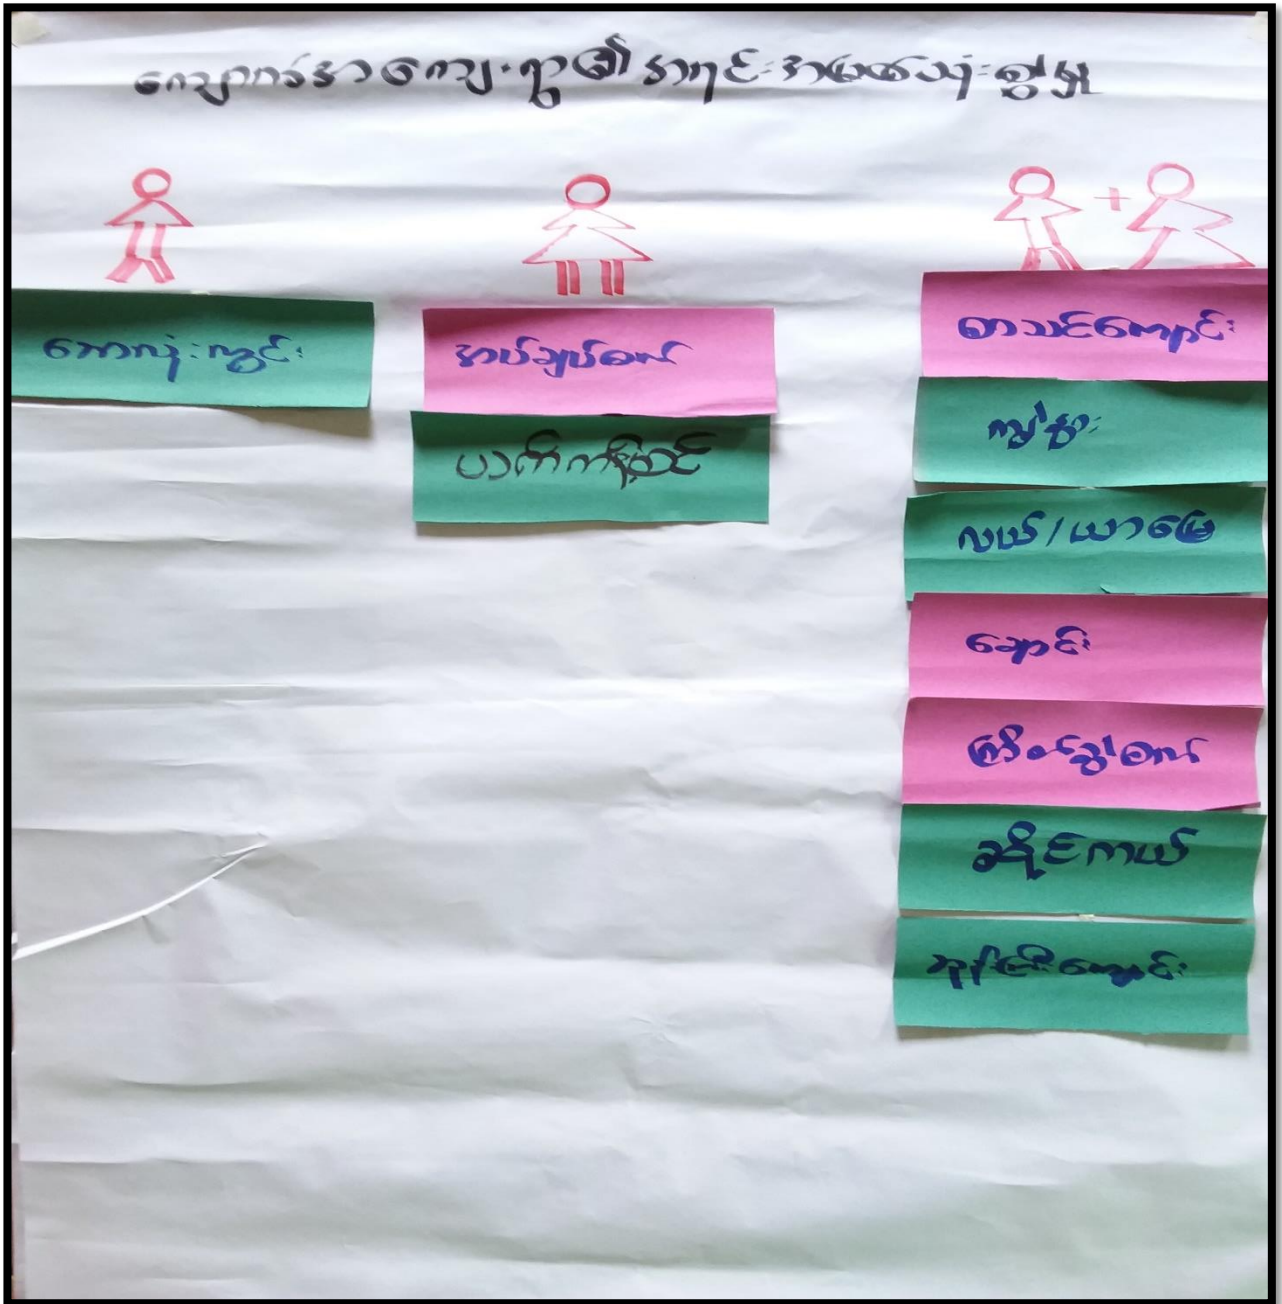 ကျောက်ခံအာကျေးရွာ၏ အရင်းအမြစ်သုံးစွဲမှု
+
ဘောလုံးကွင်း
အပ်ချုပ်စက်
ယက်ကန်းစင်
စာသင်ကျောင်း
ကျွဲ/နွား
လယ်/ယာမြေ
ချောင်း
ကြိတ်ခွဲစက်
ဆိုင်ကယ်
ဘုန်းကြီးကျောင်း